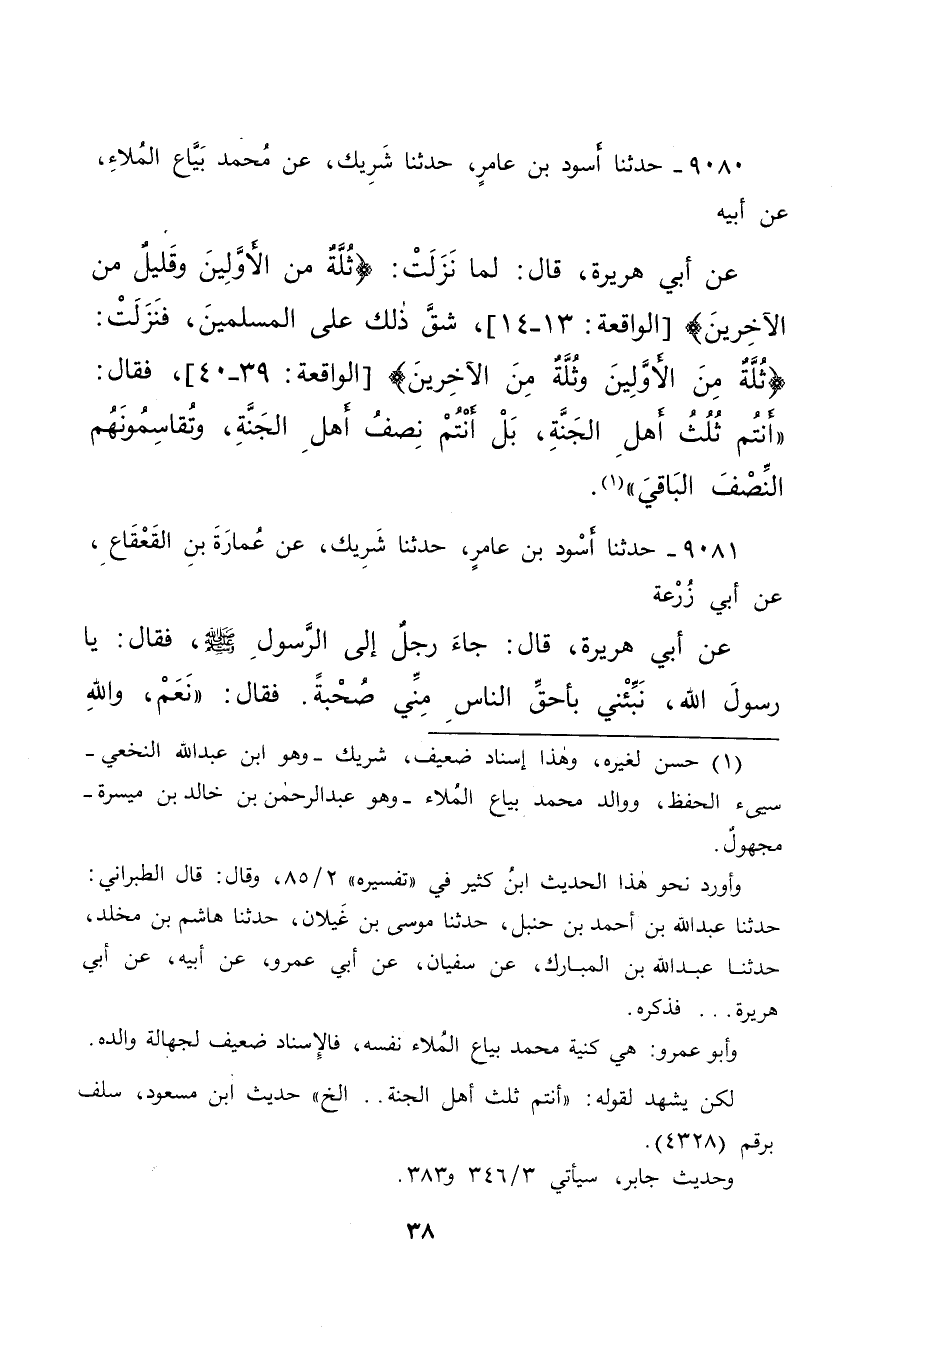 ٩٠٨٠ ـ حدثنا أَسود بن عامرٍ، حدثنا شَرِيك، عن مُحمد بَيَّاع المُلاءِ،
عن أبيه
عن أبي هريرة، قال: لما نَزَلَتْ: ﴿ثُلَّةٌ من الأَوَّلِينَ وقَليلٌ من
الآخِرِينَ﴾ [الواقعة: ١٣-١٤]، شقَّ ذٰلك على المسلمينَ، فنَزَلَتْ:
﴿ثُلَّةٌ مِنَ الأَوَّلِينَ وثُلَّةٌ مِنَ الآخِرِينَ﴾ [الواقعة: ٣٩-٤٠]، فقال:
«أَنتُم ثُلُثُ أَهلِ الجَنَّةِ، بَلْ أَنْتُمْ نِصفُ أَهلِ الجَنَّةِ، وتُقاسِمُونَهُم
النِّصْفَ البَاقيَ»(١).
٩٠٨١ ـ حدثنا أَسْود بن عامرٍ، حدثنا شَرِيك، عن عُمارَةَ بنِ القَعْقَاعِ،
عن أبي زُرْعة
عن أبي هريرة، قال: جاءَ رجلٌ إلى الرَّسولِ ﷺ، فقال: يا
رسولَ الله، نَبِّئْني بأحقِّ الناسِ مِنِّي صُحْبةً. فقال: «نَعَمْ، واللهِ
(١) حسن لغيره، وهٰذا إسناد ضعيف، شريك ـ وهو ابن عبدالله النخعي ـ
سيىء الحفظ، ووالد محمد بياع المُلاء ـ وهو عبدالرحمٰن بن خالد بن ميسرة ـ
مجهولٌ.
وأورد نحو هٰذا الحديث ابنُ كثير في «تفسيره» ٨٥/٢، وقال: قال الطبراني:
حدثنا عبدالله بن أحمد بن حنبل، حدثنا موسى بن غَيلان، حدثنا هاشم بن مخلد،
حدثنا عبدالله بن المبارك، عن سفيان، عن أبي عمرو، عن أبيه، عن أبي
هريرة... فذكره.
وأبو عمرو: هي كنية محمد بياع المُلاء نفسه، فالإسناد ضعيف لجهالة والده.
لكن يشهد لقوله: «أنتم ثلث أهل الجنة.. الخ» حديث ابن مسعود، سلف
برقم (٤٣٢٨).
وحديث جابر، سيأتي ٣٤٦/٣ و٣٨٣.
٣٨